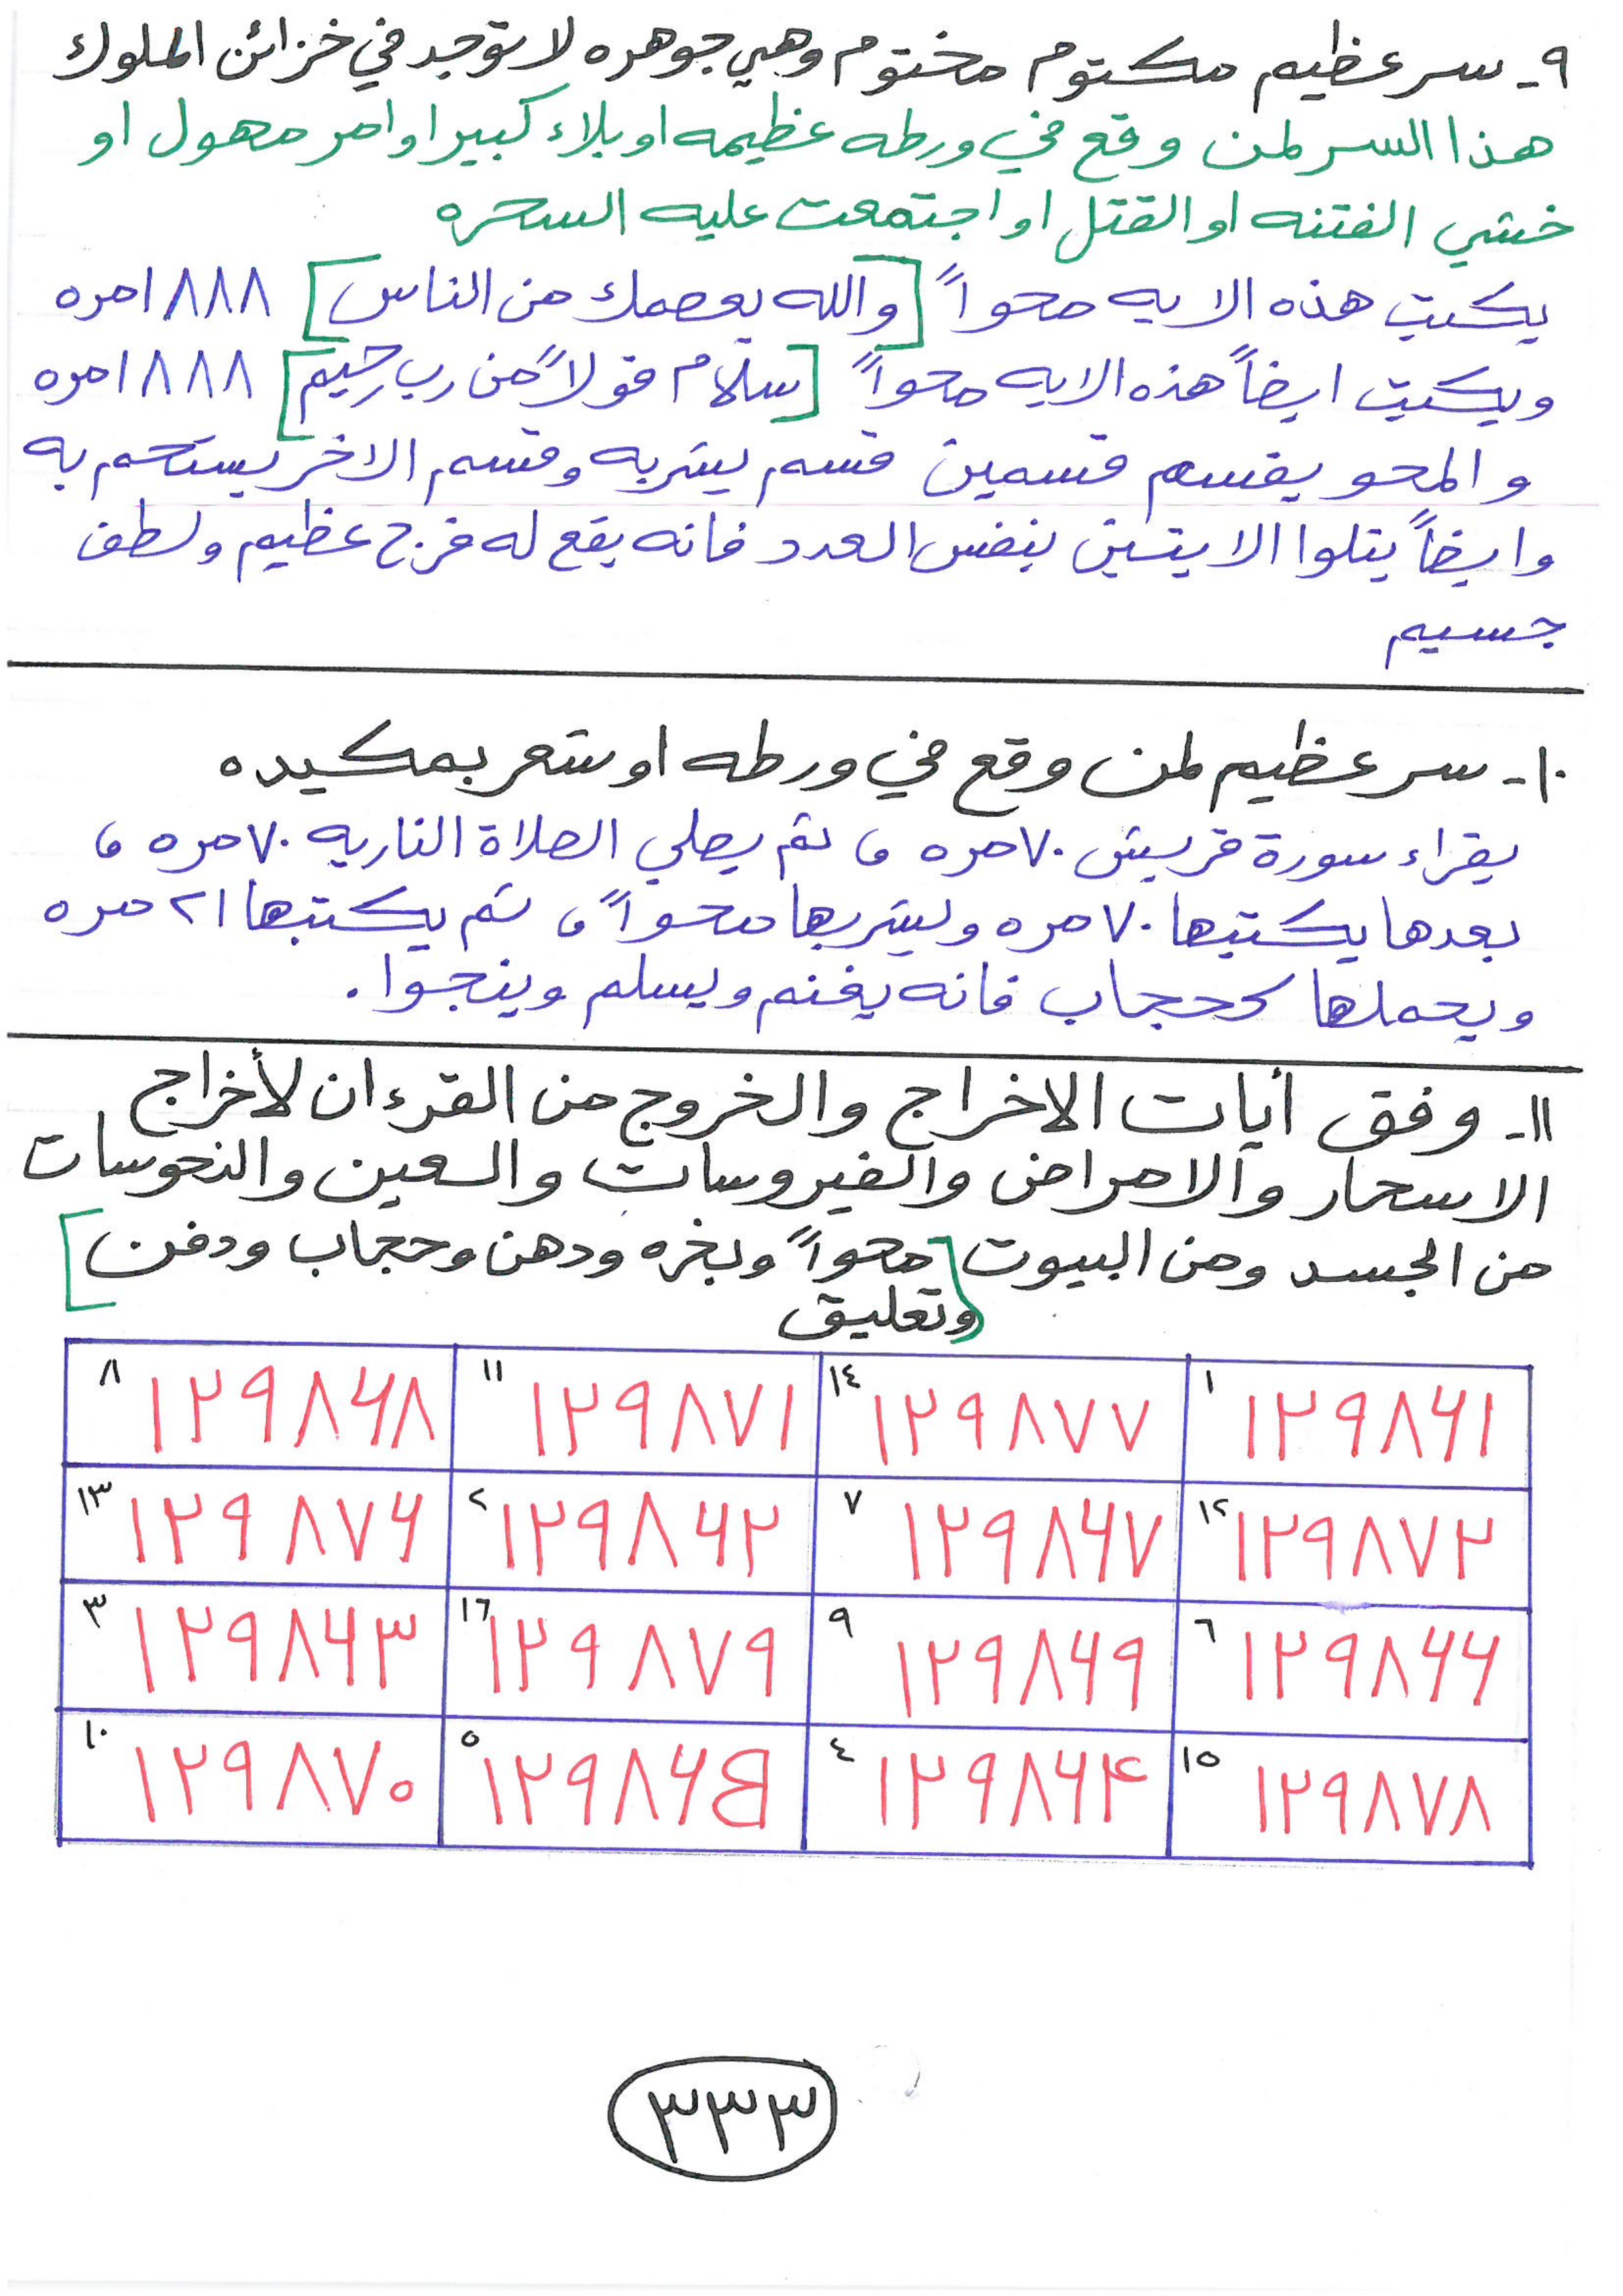 ٩ـ سر عظيم مكتوم مختوم وهي جوهره لا توجد في خزائن الملوك
هذا السر لمن وقع في ورطه عظيمه او بلاء كبير او امر مهول او
خشي الفتنه او القتل او اجتمعت عليه السحره
يكتب هذه الايه محواً [والله يعصمك من الناس] ١٨٨٨ مره
ويكتب ايضاً هذه الايه محواً [سلام قولاً من رب رحيم] ١٨٨٨ مره
و المحو يقسم قسمين قسم يشربه وقسم الاخر يستحم به
وايضاً يتلوا الايتين بنفس العدد فانه يقع له فرج عظيم ولطف
جسيم
١٠ـ سر عظيم لمن وقع في ورطه او شعر بمكيده
يقراء سورة قريش ٧٠ مره ، ثم يصلي الصلاة الناريه ٧٠ مره ،
بعدها يكتبها ٧٠ مره ويشربها محواً ، ثم يكتبها ٢١ مره
ويحملها كحجاب فانه يغنم ويسلم وينجوا .
١١ـ وفق أيات الاخراج والخروج من القرءان لأخراج
الاسحار والامراض والفيروسات والعين والنحوسات
من الجسد ومن البيوت [محواً وبخره ودهن وحجاب ودفن]
وتعليق
١ ١٢٩٨٦١ ١٤ ١٢٩٨٧٧ ١١ ١٢٩٨٧١ ٨ ١٢٩٨٦٨
١٢ ١٢٩٨٧٢ ٧ ١٢٩٨٦٧ ٢ ١٢٩٨٦٢ ١٣ ١٢٩٨٧٦
٦ ١٢٩٨٦٦ ٩ ١٢٩٨٦٩ ١٦ ١٢٩٨٧٩ ٣ ١٢٩٨٦٣
١٥ ١٢٩٨٧٨ ٤ ١٢٩٨٦۴ ٥ ١٢٩٨٦٥ ١٠ ١٢٩٨٧٠
٣٣٣